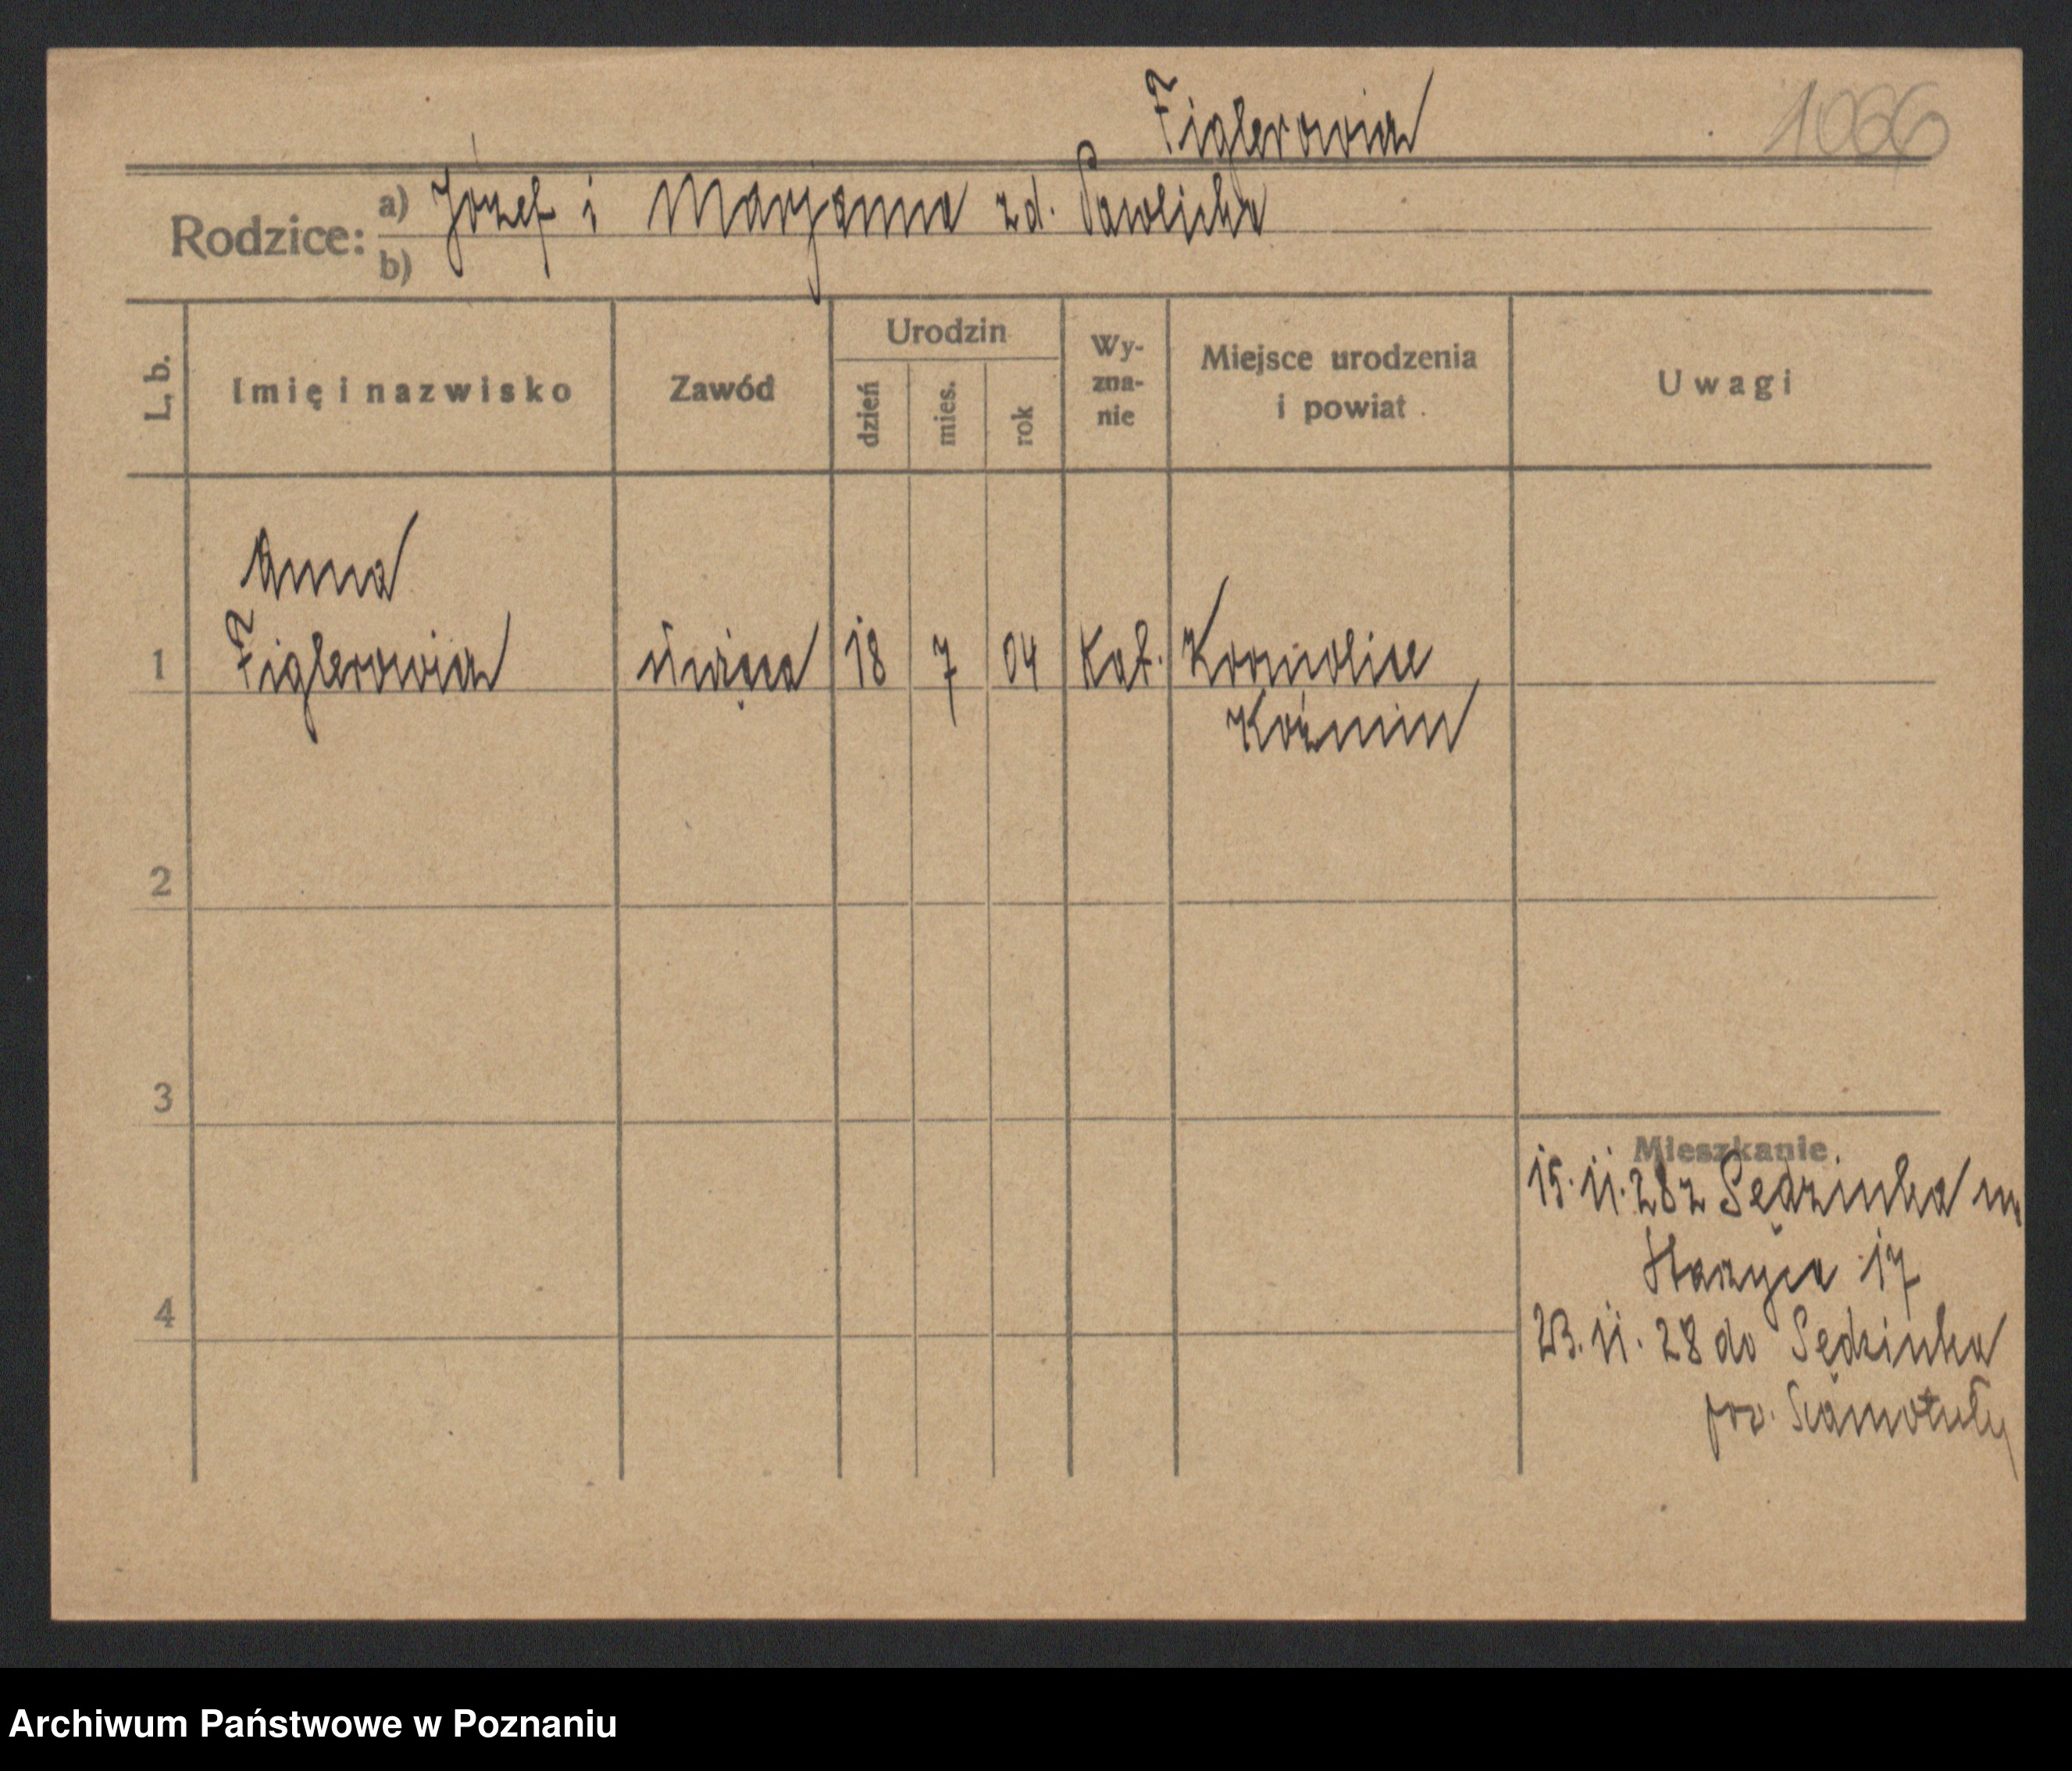 Figlerowicz
1066
Rodzice: a) Józef i Marjanna zd. Pawlicka
b)
L. b. Imię i nazwisko Zawód Urodzin dzień mies. rok Wy-zna-nie Miejsce urodzenia i powiat Uwagi
Anna
1 Figlerowicz służąca 18 7 04 Kat. Kromolice
Koźmin
2
3
Mieszkanie
15. 11. 28 z Sędzinka
17
4
23. 11. 28 do Sędzinka
pow. Szamotuły
Archiwum Państwowe w Poznaniu